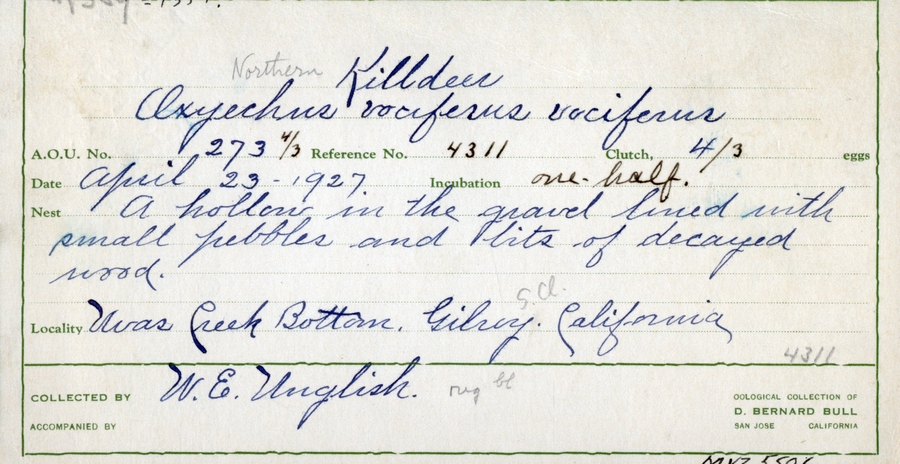 Northern Killdeer
Oxyechus vociferus vociferus
A.O.U. No. 273 4/3 Reference No. 4311 Clutch, 4/3 eggs
Date April 23-1927 Incubation one-half.
Nest A hollow in the gravel lined with
small pebbles and bits of decayed
wood.
S.Cl.
Locality Uvas Creek Bottom. Gilroy. California
4311
COLLECTED BY W.E. Unglish.
OOLOGICAL COLLECTION OF
D. BERNARD BULL
ACCOMPANIED BY
SAN JOSE CALIFORNIA